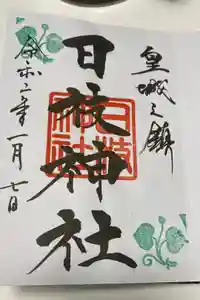 皇城之鎮
日枝神社
日枝
神社
令和二年一月七日